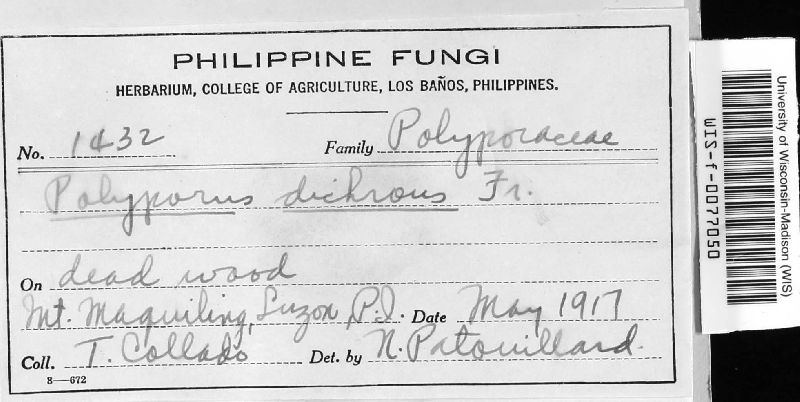 PHILIPPINE FUNGI
HERBARIUM, COLLEGE OF AGRICULTURE, LOS BAÑOS, PHILIPPINES.
No. 1432 Family Polyporaceae
Polyporus dichrous Fr.
On dead wood
Mt. Maquiling, Luzon, P.I. Date May 1917
Coll. T. Collado Det. by N. Patouillard.
8—672
University of Wisconsin-Madison (WIS)
WIS-f-0077050